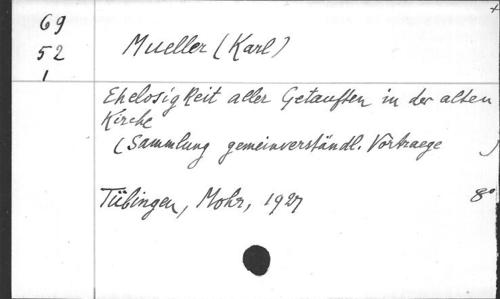 69
52
1
Mueller (Karl)
Ehelosigkeit aller Getauften in der alten
Kirche
(Sammlung gemeinverständl. Vortraege )
Tübingen, Mohr, 1927
8°